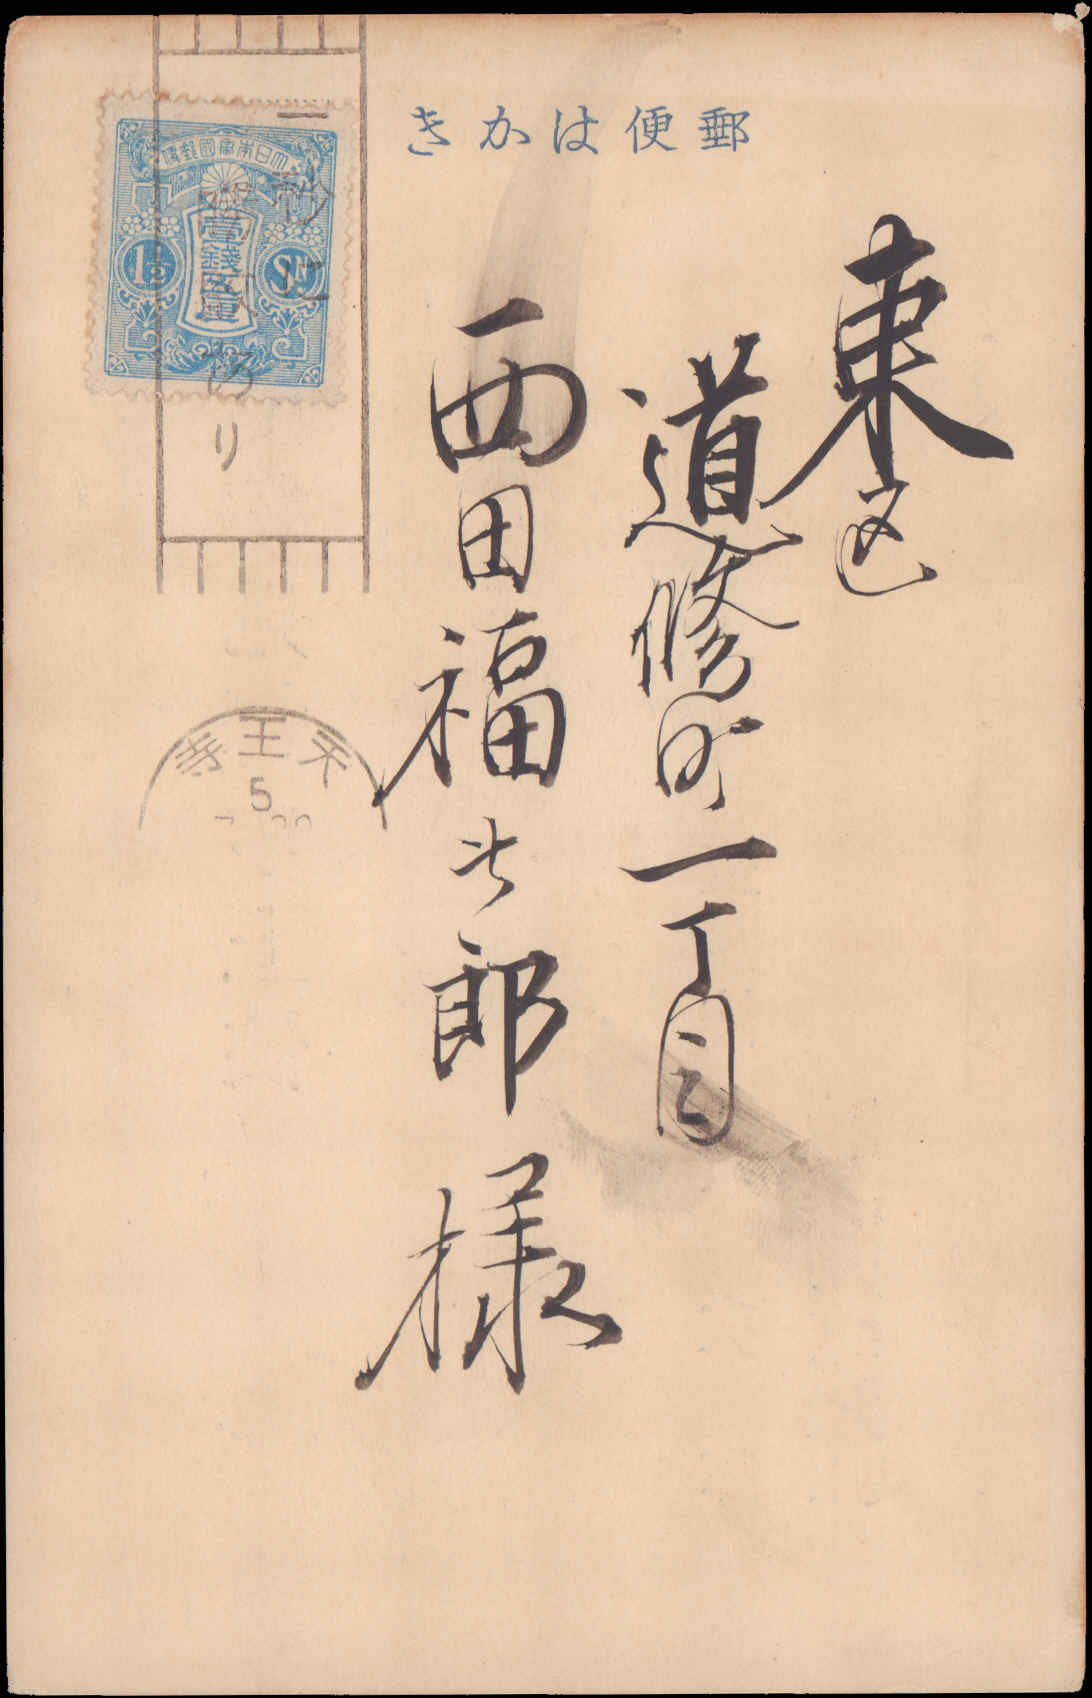 郵便はかき
東区
道修町一丁目
西田福 郎様
大日本帝國郵便
壹錢五厘
1½
Sn
り
天王寺
5